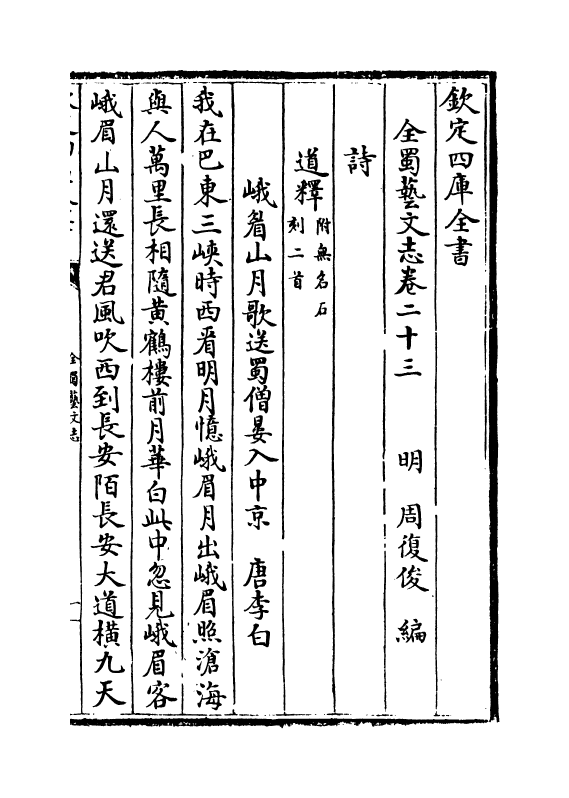 欽定四庫全書
全蜀藝文志卷二十三 明 周復俊 編
詩
道釋 附無名石刻二首
峨眉山月歌送蜀僧晏入中京 唐李白
我在巴東三峽時西看明月憶峨眉月出峨眉照滄海
與人萬里長相隨黄鶴樓前月華白此中忽見峨眉客
峨眉山月還送君風吹西到長安陌長安大道橫九天
全蜀藝文志